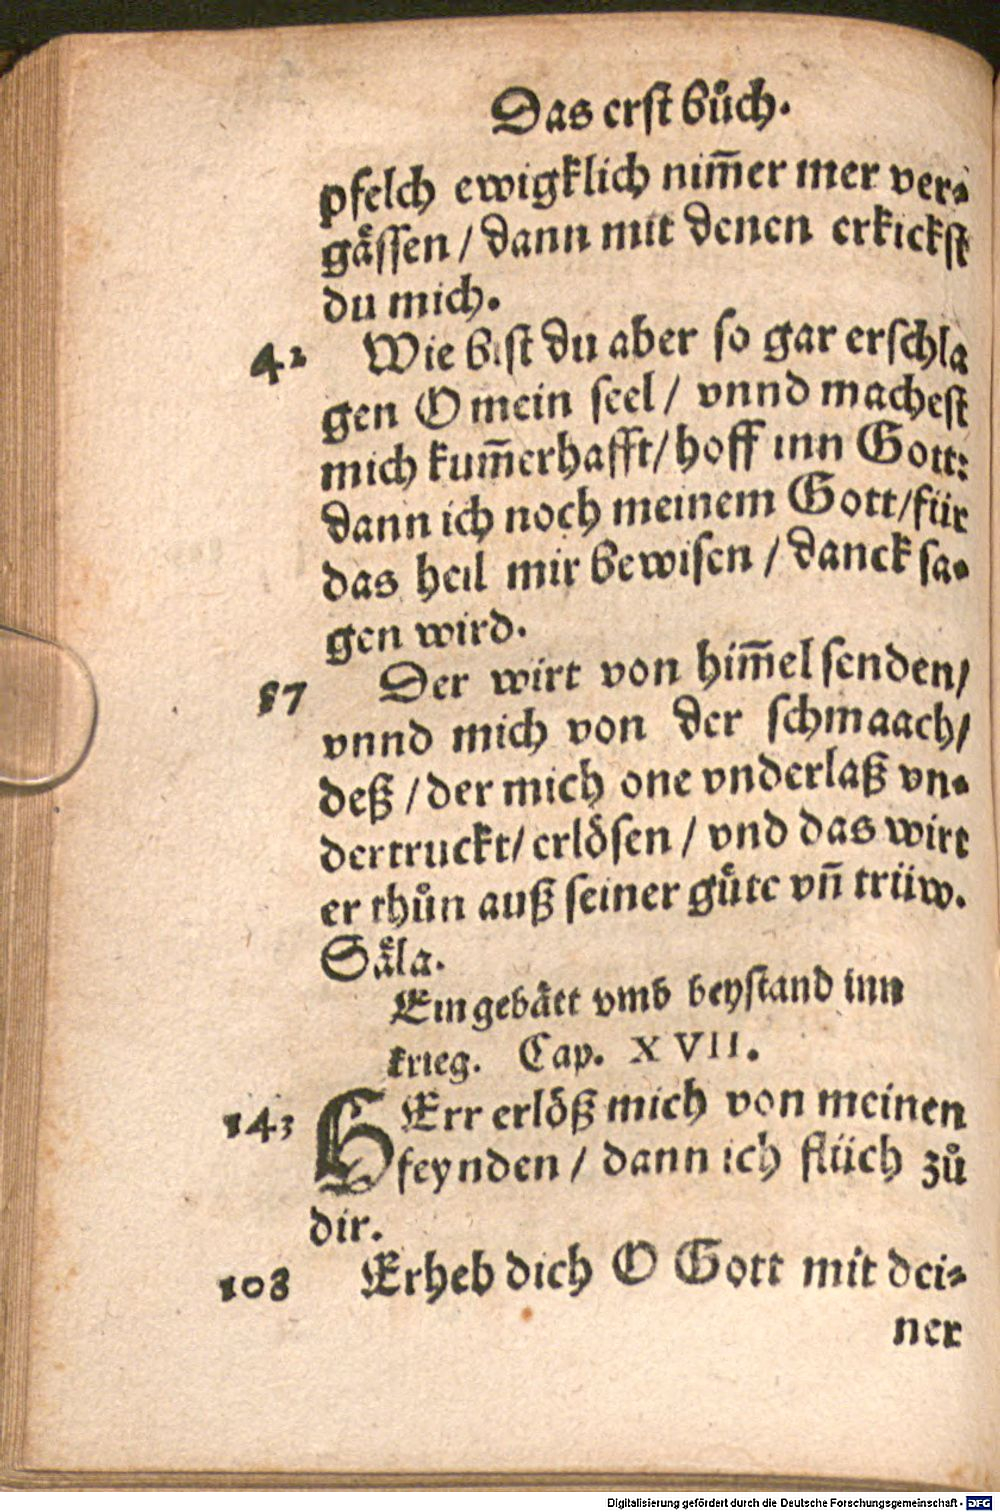 Das erst bůch.
pfelch ewigklich nim̄er mer ver⸗
gåssen / dann mit denen erkickst
du mich.
42 Wie bist du aber so gar erschla
gen O mein seel / vnnd machest
mich kum̄erhafft / hoff inn Gott:
dann ich noch meinem Gott / für
das heil mir bewisen / danck sa⸗
gen wird.
57 Der wirt von him̄el senden /
vnnd mich von der schmaach /
deß / der mich one vnderlaß vn⸗
dertruckt / erlösen / vnd das wirt
er thůn auß seiner gůte vn̄ trüw.
Såla.
Ein gebått vmb beystand inn
krieg. Cap. XVII.
143 HErr erlöß mich von meinen
feynden / dann ich flüch zů
dir.
108 Erheb dich O Gott mit dei⸗
ner
Digitalisierung gefördert durch die Deutsche Forschungsgemeinschaft - DFG